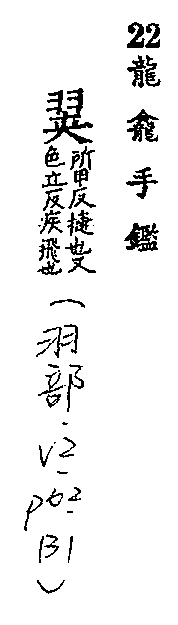 22龍龕手鑑
翜所甲反捷也又
色立反疾飛也
(羽部-V2-p62-B1)